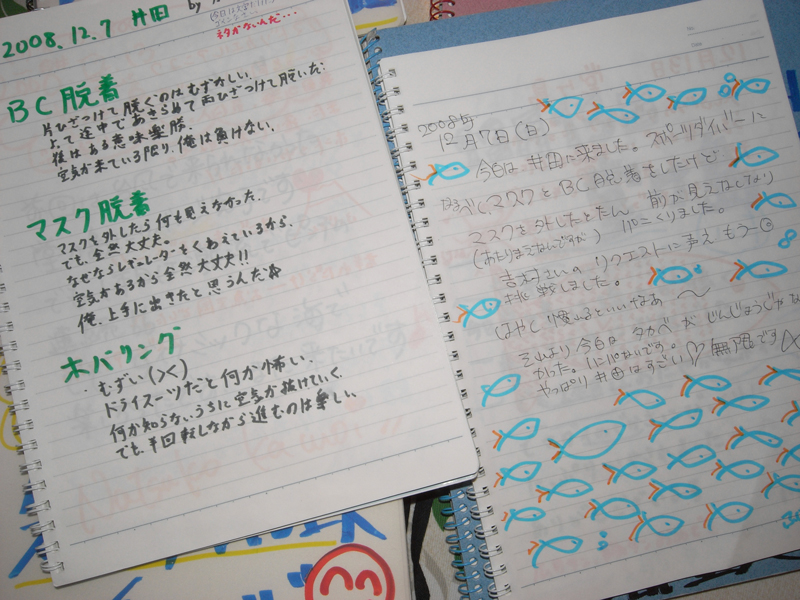 2008.12.7 井田 by
ネタがないんだ…
BC脱着
片ひざつけて脱ぐのはむずかしい。
よって途中であきらめて両ひざつけて脱いだ。
後はある意味楽勝。
空気が来ている限り、俺は負けない。
マスク脱着
マスクを外したら何も見えなかった。
でも、全然大丈夫。
なぜならレギュレーターをくわえているから、
空気があるから全然大丈夫!!
俺、上手に出きたと思うんだ
ホバリング
むずい(><)
ドライスーツだと何か怖い。
何か知らないうちに空気が抜けていく
でも、半回転しながら進むのは楽しい
2008年
12月7日(日)
今日は井田に来ました。スポーツダイバーに
なるべく、マスクとBC脱着をしたけど
マスクを外したとたん、前が見えなくなり
(あたりまえなんですが) パニくりました。
吉村さんのリクエストに答え もう一回
挑戦しました。
はやく慣れるといいなあ〜
それより今日は タカベが じんじょうじゃな
かった。ハンパないです。
やっぱり 井田はすごい♡ 無限です